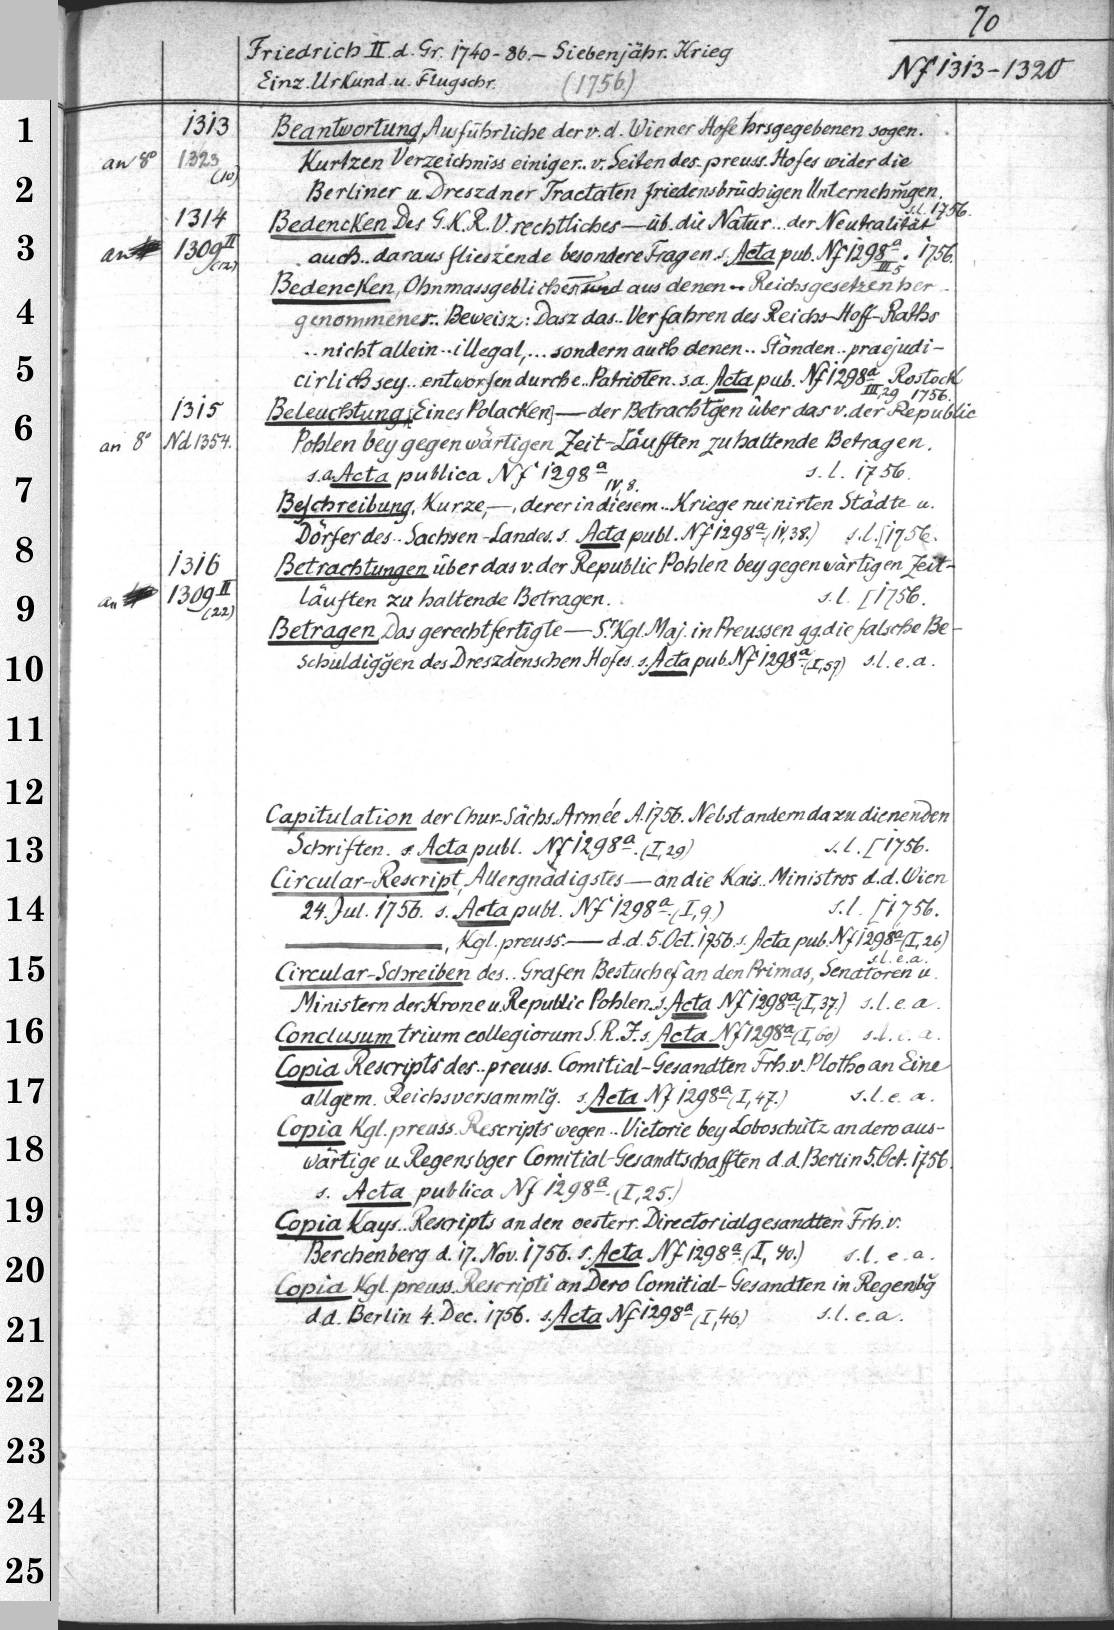 70
Friedrich II. d. Gr. 1740-86. – Siebenjähr. Krieg
Nf 1313-1320
Einz. Urkund. u. Flugschr. (1756.)
1
1313 Beantwortung, Ausführliche der v. d. Wiener Hofe hrsgegebenen sogen.
an 8° 1323 (10) Kurtzen Verzeichniss einiger.. v. Seiten des preuss. Hofes wider die
2
Berliner u. Dreszdner Tractaten friedensbrüchigen Unternehmgen.
s.l. 1756.
1314 Bedencken Des G.K.R.V. rechtliches — üb. die Natur... der Neutralität
3
an 1309 II (12) auch.. daraus flieszende besondere Fragen. s. Acta pub. Nf 1298a III,5 . 1756.
Bedencken, Ohnmassgebliches und aus denen .. Reichsgesetzen her-
4
genommener.. Beweisz: Dasz das.. Verfahren des Reichs-Hoff-Raths
.. nicht allein .. illegal, ... sondern auch denen .. Ständen .. praejudi-
5
cirlich sey.. entworfen durch e. Patrioten. s.a. Acta pub. Nf 1298a III,29 Rostock 1756.
1315 Beleuchtung, [Eines Polacken] — der Betrachtgen über das v. der Republic
6
an 8° Nd 1354. Pohlen bey gegenwärtigen Zeit-Läufften zu haltende Betragen.
s.a. Acta publica Nf 1298a IV,8. s.l. 1756.
7
Beschreibung, Kurze, —, derer in diesem .. Kriege ruinirten Städte u.
8
Dörfer des .. Sachsen-Landes. s. Acta publ. Nf 1298a (IV,38.) s.l. [1756.
1316 Betrachtungen über das v. der Republic Pohlen bey gegenwärtigen Zeit-
9
an 1309 II (22) läuften zu haltende Betragen. s.l. [1756.
Betragen, Das gerechtfertigte — Sr. Kgl. Maj. in Preussen gg. die falsche Be-
10
schuldiggen des Dreszdenschen Hofes. s. Acta pub. Nf 1298a (I,57) s.l.e.a.
11
12
Capitulation der Chur-Sächs. Armée A. 1756. Nebst andern dazu dienenden
13
Schriften. s. Acta publ. Nf 1298a (I,29) s.l. [1756.
Circular-Rescript, Allergnädigstes — an die Kais.. Ministros d.d. Wien
14
24. Jul. 1756. s. Acta publ. Nf 1298a (I,9.) s.l. [1756.
———, Kgl. preuss. — d.d. 5. Oct. 1756. s. Acta pub. Nf 1298a (I,26)
s.l.e.a.
15
Circular-Schreiben des.. Grafen Bestuchef an den Primas, Senatoren u.
Ministern der Krone u. Republic Pohlen. s. Acta Nf 1298a (I,37.) s.l.e.a.
16
Conclusum trium collegiorum S.R.I. s. Acta Nf 1298a (I,60) s.l.e.a.
Copia Rescripts des .. preuss. Comitial-Gesandten Frh. v. Plotho an Eine
17
allgem. Reichsversammlg. s. Acta Nf 1298a (I,47.) s.l.e.a.
Copia Kgl. preuss. Rescripts wegen .. Victorie bey Loboschütz an dero aus-
18
wärtige u. Regensbger Comitial-Gesandtschafften d.d. Berlin 5. Oct. 1756.
s. Acta publica Nf 1298a (I,25.)
19
Copia Kays.. Rescripts an den oesterr. Directorialgesandten Frh. v.
20
Berchenberg d. 17. Nov. 1756. s. Acta Nf 1298a (I,40.) s.l.e.a.
Copia Kgl. preuss. Rescripti an Dero Comitial-Gesandten in Regensbg
21
d.d. Berlin 4. Dec. 1756. s. Acta Nf 1298a (I,46) s.l.e.a.
22
23
24
25